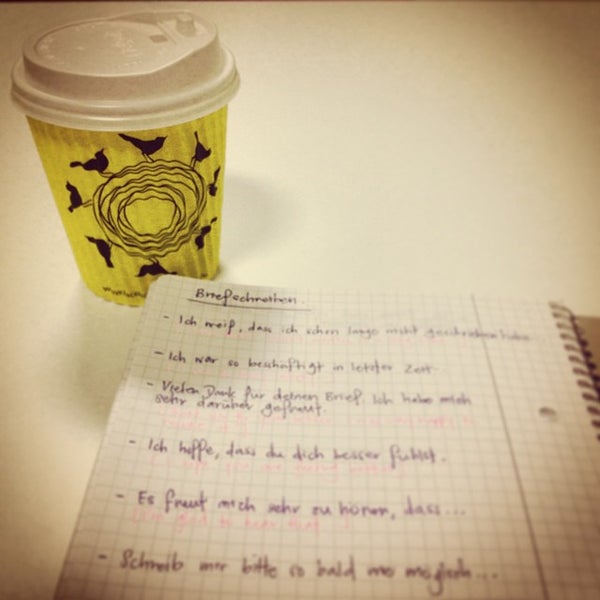 Briefschreiben.
- Ich weiß, dass ich schon lange nicht geschrieben habe.
- Ich war so beschäftigt in letzter Zeit.
- Vielen Dank für deinen Brief. Ich habe mich
sehr darüber gefreut.
- Ich hoffe, dass du dich besser fühlst.
- Es freut mich sehr zu hören, dass...
I'm glad to hear that
- Schreib mir bitte so bald wie möglich...